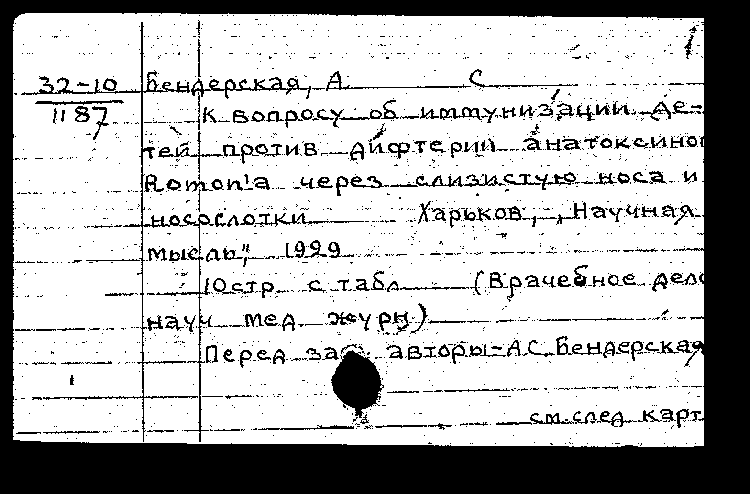 1
32-10 Бендерская, А С
1187 К вопросу об иммунизации де-
тей против дифтерии анатоксино
Ramon'a через слизистую носа и
носоглотки Харьков, „Научная
мысль", 1929
10 стр. с табл. (Врачебное дело
науч мед журн)
Перед заг. авторы-А.С. Бендерская
см. след карт